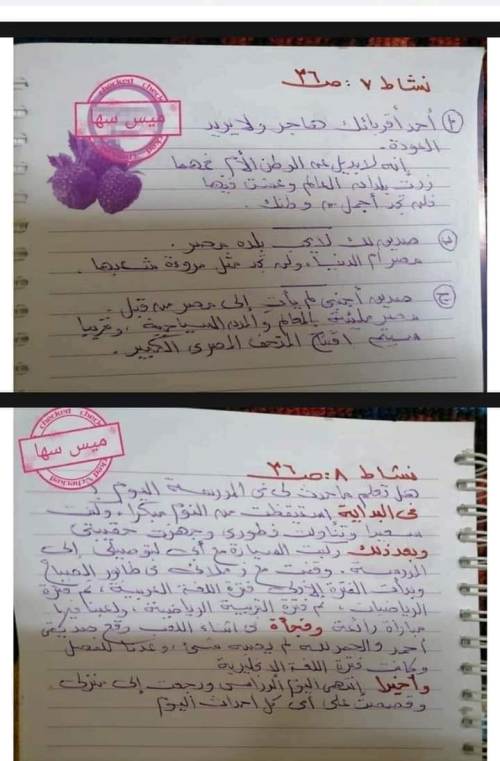 نشاط ٧ : ص ٣٦
checked
ميس سها
أ أحد أقربائك هاجر ولا يريد
العودة .
إنه لا بديل عن الوطن الأم فمهما
زرت بلدان العالم وعشت فيها
فلن تجد أجمل من وطنك .
ب صديق لك لا يحب بلده مصر .
مصر أم الدنيا ، ولن تجد مثل مروءة شعبها .
ج صديق أجنبي لم يأت إلى مصر من قبل .
مصر مليئة بالمعالم والمدن السياحية ، وقريبا
سيتم افتتاح المتحف المصرى الكبير .
checked
ميس سها
نشاط ٨ : ص ٣٦
هل تعلم ما حدث لى فى المدرسة اليوم ؟
فى البداية استيقظت من النوم مبكرا ، وكنت
سعيدا وتناولت فطورى وجهزت حقيبتى
وبعد ذلك ركبت السيارة مع أبى لتوصيلى إلى
المدرسة . وقفت مع زملائى فى طابور الصباح
وبدأت الفترة الأولى فترة اللغة العربية ، ثم فترة
الرياضيات ، ثم فترة التربية الرياضية ، ولعبنا فيها
مباراة رائعة وفجأة فى أثناء اللعب وقع صديقى
أحمد والحمد لله لم يصبه شىء ، وعدنا للفصل
وكانت فترة اللغة الإنجليزية
وأخيرا إنتهى اليوم الدراسى ورجعت إلى منزلى
وقصصت على أمى كل أحداث اليوم